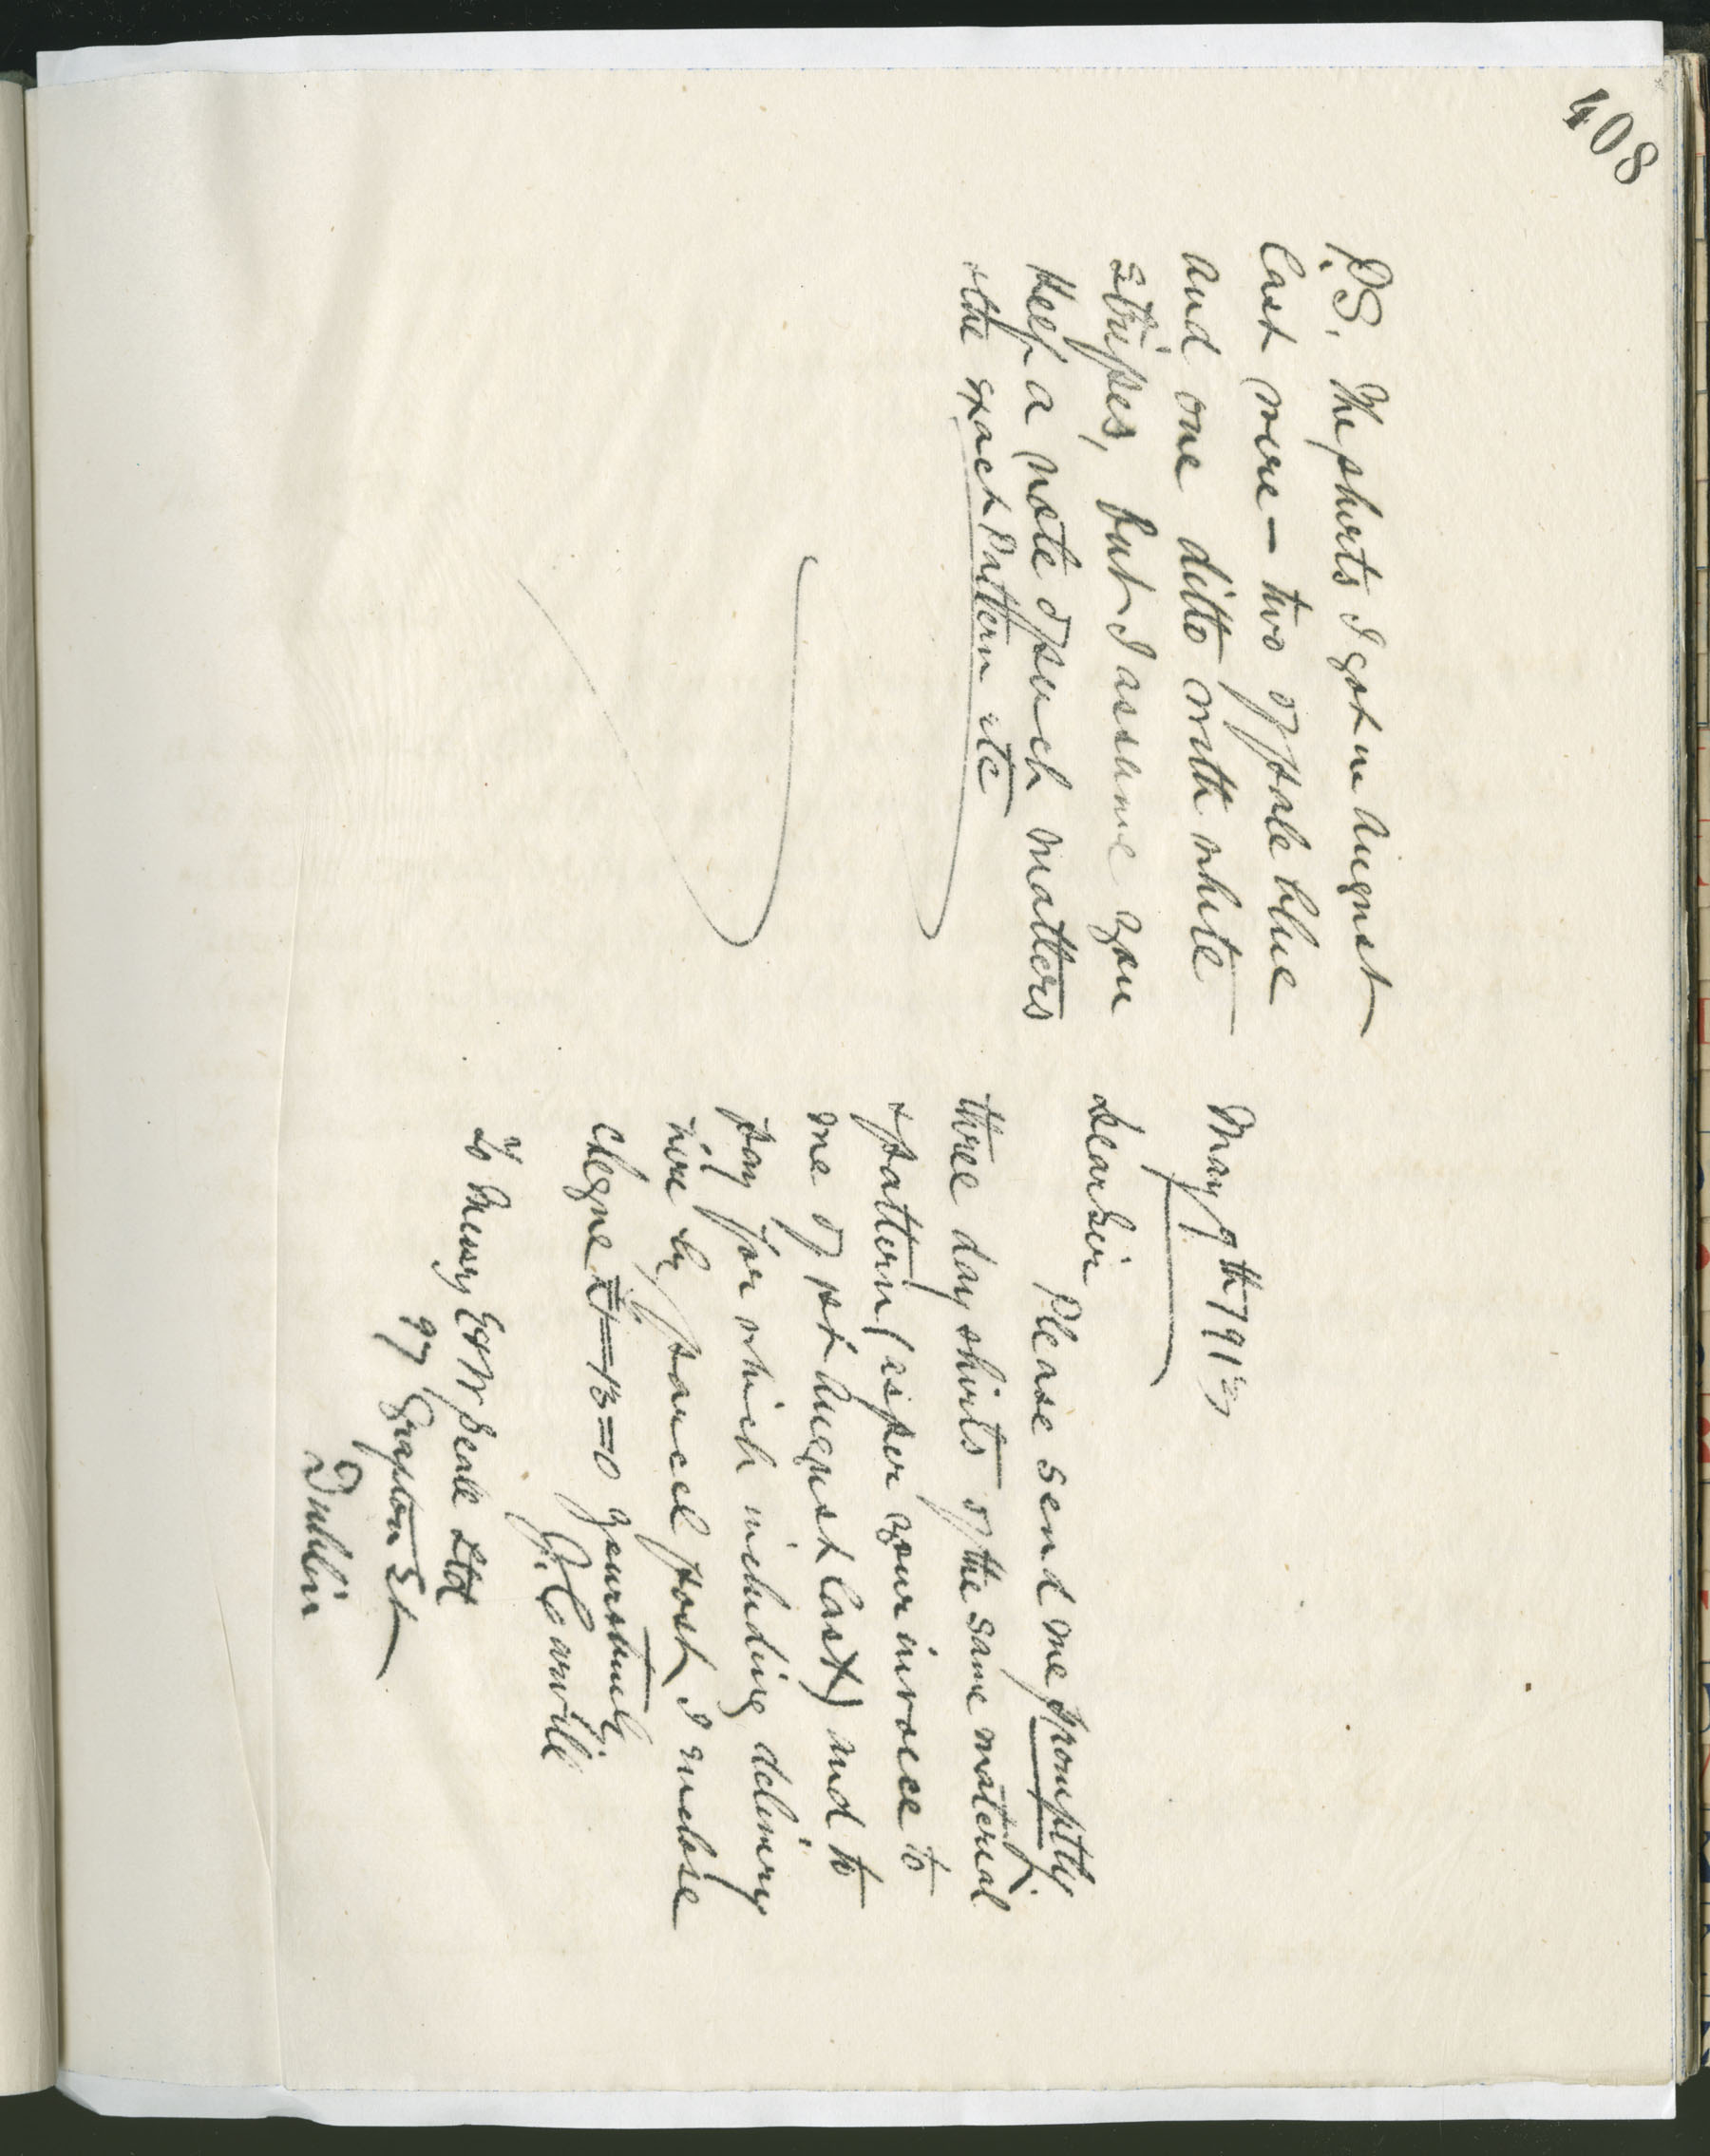 408
May 9th 1913
Dear Sir
Please send me promptly
three day shirts of the same material
& pattern (as per your invoice to
me of 1st August last) and to
pay for which including delivery
here by parcel post, I enclose
cheque £1=13=0 yours truly
J. Carvill
To Messrs E & W Seale Ltd
97 Grafton St
Dublin
P.S. The shirts I got in August
last were — two of pale blue
and one ditto with white
stripes, but I assume you
keep a note of such matters
& the exact pattern etc